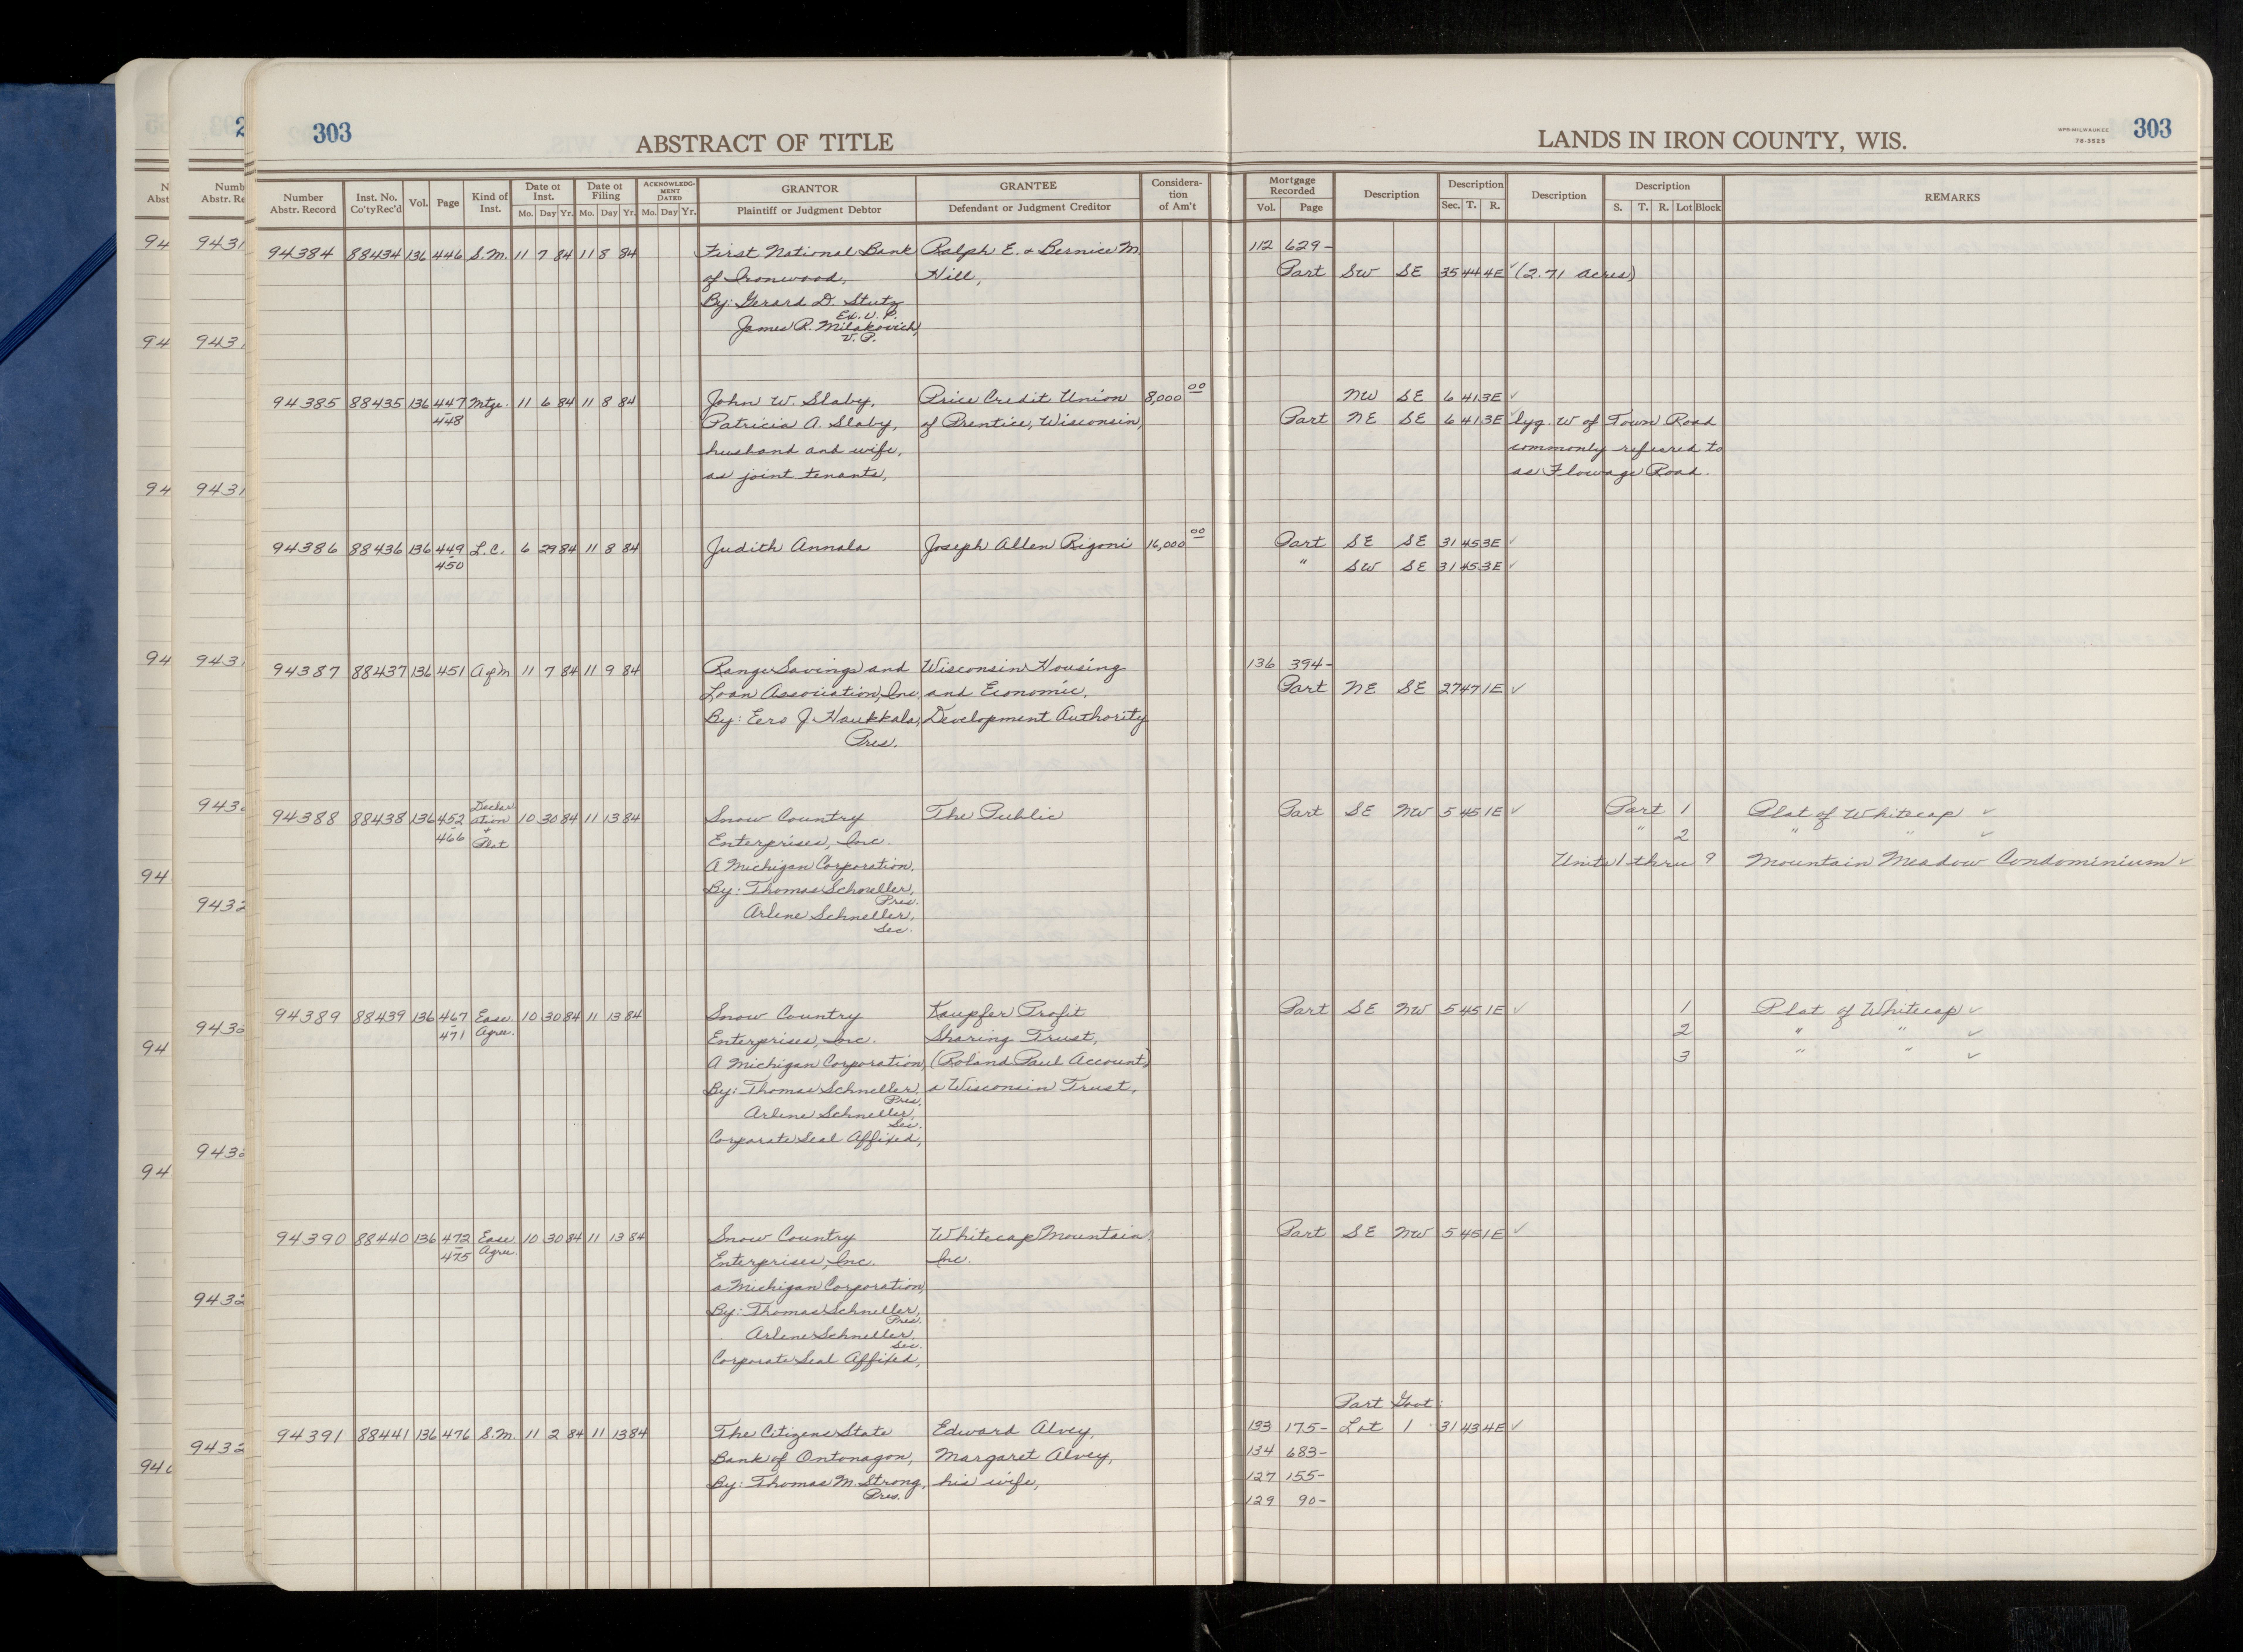 303
ABSTRACT OF TITLE
LANDS IN IRON COUNTY, WIS.
WPB-MILWAUKEE
78-3525
303
Number Abstr. Record | Inst. No. Co'ty Rec'd | Vol. | Page | Kind of Inst. | Date of Inst. Mo. Day Yr. | Date of Filing Mo. Day Yr. | ACKNOWLEDG-MENT DATED Mo. Day Yr. | GRANTOR Plaintiff or Judgment Debtor | GRANTEE Defendant or Judgment Creditor | Considera-tion of Am't | Mortgage Recorded Vol. Page | Description | Description Sec. T. R. | Description | Description S. T. R. Lot Block | REMARKS
94384 88434 136 446 S.M. 11 7 84 11 8 84 First National Bank Ralph E. & Bernice M. 112 629-
of Ironwood, Hill, Part SW SE 35 44 4E ✓ (2.71 acres)
By: Gerard D. Stutz
Ex. V. P.
James R. Milakovich,
V. P.
94385 88435 136 447 Mtge. 11 6 84 11 8 84 John W. Slaby, Price Credit Union 8,000 00 NW SE 6 41 3E ✓
-448 Patricia A. Slaby, of Prentice, Wisconsin, Part NE SE 6 41 3E ✓ lyg. W of Town Road
husband and wife, commonly referred to
as joint tenants, as Flowage Road.
94386 88436 136 449 L.C. 6 29 84 11 8 84 Judith Annala Joseph Allen Rigoni 16,000 00 Part SE SE 31 45 3E ✓
-450 " SW SE 31 45 3E ✓
94387 88437 136 451 A of M 11 7 84 11 9 84 Range Savings and Wisconsin Housing 136 394-
Loan Association, Inc. and Economic, Part NE SE 27 47 1E ✓
By: Eero J. Haukkala, Development Authority
Pres.
94388 88438 136 452 Declaration + Plat 10 30 84 11 13 84 Snow Country The Public Part SE NW 5 45 1E ✓ Part 1 Plat of Whitecap ✓
-466 Enterprises, Inc. " 2 " " ✓
A Michigan Corporation, Units 1 thru 9 Mountain Meadow Condominium ✓
By: Thomas Schneller,
Pres.
Arlene Schneller,
Sec.
94389 88439 136 467 Ease. 10 30 84 11 13 84 Snow Country Kaupfer Profit Part SE NW 5 45 1E ✓ 1 Plat of Whitecap ✓
-471 Agree. Enterprises, Inc. Sharing Trust, 2 " " ✓
A Michigan Corporation, (Roland Paul Account) 3 " " ✓
By: Thomas Schneller, a Wisconsin Trust,
Pres.
Arlene Schneller,
Sec.
Corporate Seal Affixed,
94390 88440 136 472 Ease 10 30 84 11 13 84 Snow Country Whitecap Mountain, Part SE NW 5 45 1E ✓
-475 Agree. Enterprises, Inc. Inc.
a Michigan Corporation,
By: Thomas Schneller,
Pres.
Arlene Schneller,
Sec.
Corporate Seal Affixed,
Part Govt.
94391 88441 136 476 S.M. 11 2 84 11 13 84 The Citizens State Edward Alvey, 133 175- Lot 1 31 43 4E ✓
Bank of Ontonagon, Margaret Alvey, 134 683-
By: Thomas M. Strong, his wife, 127 155-
Pres. 129 90-